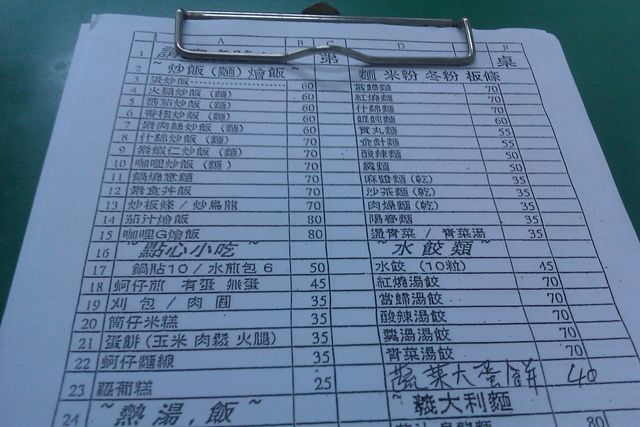 A B C D F
1 第 桌
2 ~ 炒飯 (麵) 燴飯 ~ 麵 米粉 冬粉 板條
3 蛋炒飯 60 當歸麵 70
4 火腿炒飯 (麵) 60 紅燒麵 70
5 蕃茄炒飯 (麵) 60 什錦麵 70
6 香椿炒飯 (麵) 60 麵 60
7 素肉絲炒飯 (麵) 60 貢丸麵 55
8 什錦炒飯 (麵) 70 金針麵 55
9 素蝦仁炒飯 (麵) 70 酸辣麵 50
10 咖哩炒飯 (麵) 70 羹麵 50
11 鍋燒意麵 70 麻醬麵 (乾) 35
12 素食丼飯 70 沙茶麵 (乾) 35
13 炒板條 / 炒烏龍 70 肉燥麵 (乾) 35
14 茄汁燴飯 80 陽春麵 35
15 咖哩G燴飯 80 燙青菜 / 青菜湯 35
16 ~ 點心小吃 ~ ~ 水餃類 ~
17 鍋貼10 / 水煎包 6 50 水餃 (10粒) 45
18 蚵仔煎 有蛋 無蛋 45 紅燒湯餃 70
19 刈 包 / 肉 圓 35 當歸湯餃 70
20 筒仔米糕 35 酸辣湯餃 70
21 蛋餅 (玉米 肉鬆 火腿) 35 羹湯湯餃 70
22 蚵仔麵線 35 青菜湯餃 70
23 蘿蔔糕 25 蔬菜大蛋餅 40
24 ~ 熱湯 , 飯 ~ ~ 義大利麵
茄汁烏龍麵 80